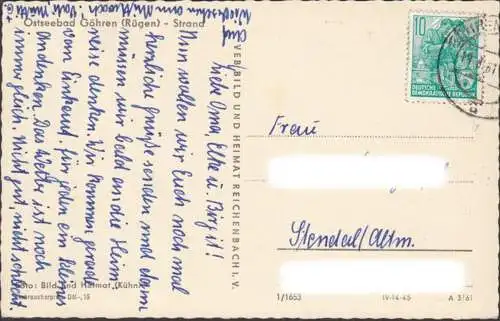 Ostseebad Göhren (Rügen) - Strand
Liebe Oma, Elke u. Birgit!
Nun wollen wir Euch noch mal
herzliche Grüße senden und dann
müssen wir bald an die Heim
reise denken. Wir kommen gerade
vom Einkauf. Für jeden ein kleines
andenken. Das Wetter ist noch
immer gleich. Nicht gut, nicht schlecht
Auf
Wiedersehen am Mittwoch
VEB BILD UND HEIMAT REICHENBACH I. V.
Foto: Bild und Heimat (Kühn)
Verbraucherpreis DM -,15
10
DEUTSCHE
DEMOKRATISCHE REPUBLIK
Frau
Stendal/Altm.
1/1653
IV-14-45
A 3/61